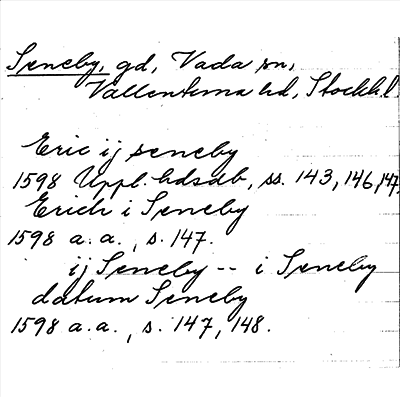 Seneby, gd, Vada sn,
Vallentuna hd, Stockh. l.
Eric ij seneby
1598 Uppl. hdsdb, ss. 143, 146, 147.
Erich i Seneby
1598 a. a., s. 147.
ij Seneby -- i Seneby
datum Seneby
1598 a. a., s. 147, 148.